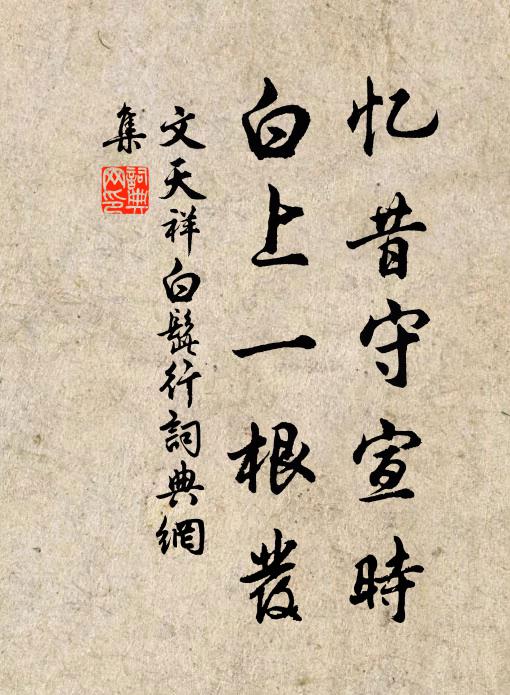 忆昔守宣時
白上一根發
文天祥白髭行詞典網
集
詞典
网印